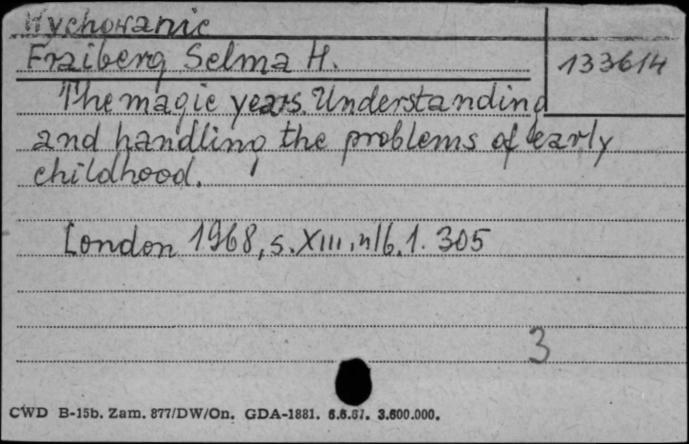 Wychowanie
Fraiberg Selma H.
133614
The magic years. Understanding
and handling the problems of early
childhood.
London 1968, s. XIII, nlb. 1. 305
3
CWD B-15b. Zam. 877/DW/On. GDA-1881. 6.6.67. 3.600.000.